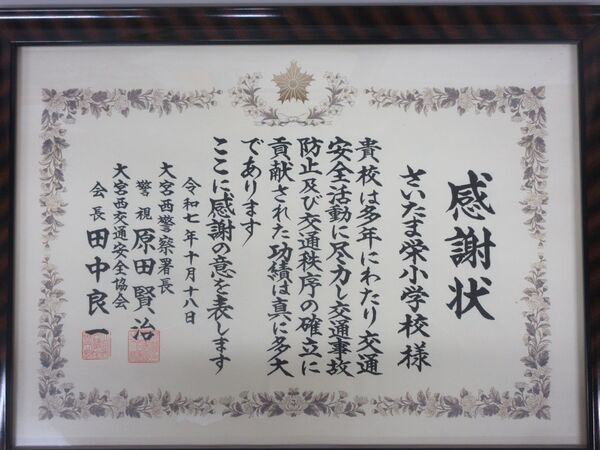 感謝状
さいたま栄小学校様
貴校は多年にわたり交通
安全活動に尽力し交通事故
防止及び交通秩序の確立に
貢献された功績は真に多大
であります
ここに感謝の意を表します
令和七年十月十八日
大宮西警察署長
警視 原田賢治
大宮西交通安全協会
会長 田中良一